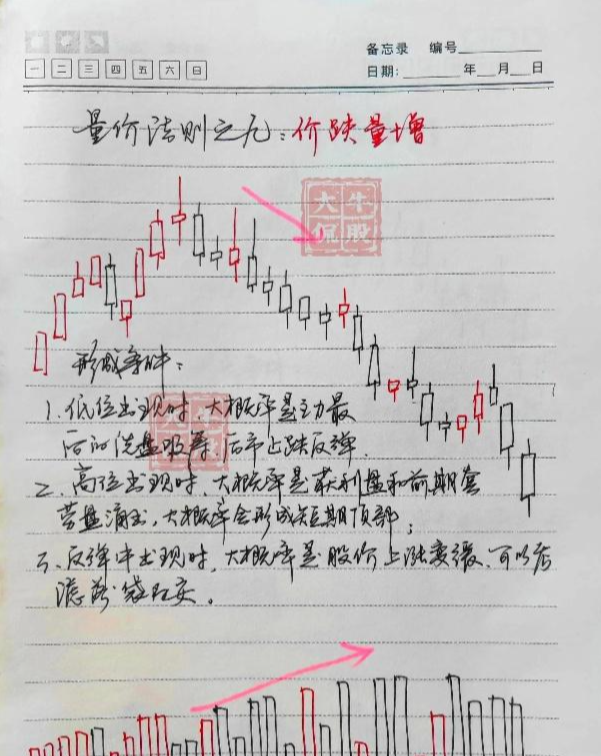 备忘录 编号
一 二 三 四 五 六 日
日期: 年 月 日
量价法则之九:价跌量增
大牛
探股
形成条件:
1、低位出现时,大概率是主力最
后的洗盘吸筹,后市止跌反弹.
2、高位出现时、大概率是获利盘和前期套
劳盘涌出,大概率会形成短期顶部;
3、反弹中出现时,大概率是股价上涨变缓、可以考
虑落袋为安。